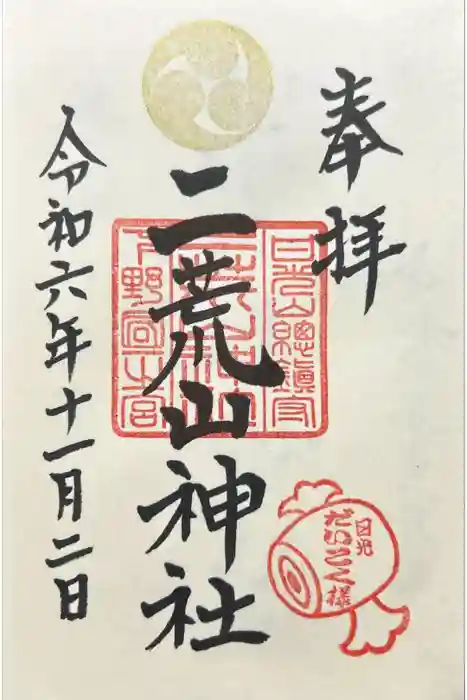 奉拝
二荒山神社
令和六年十一月二日
日光山総鎮守
二荒山神社
下野国一之宮
日光
だいこく様